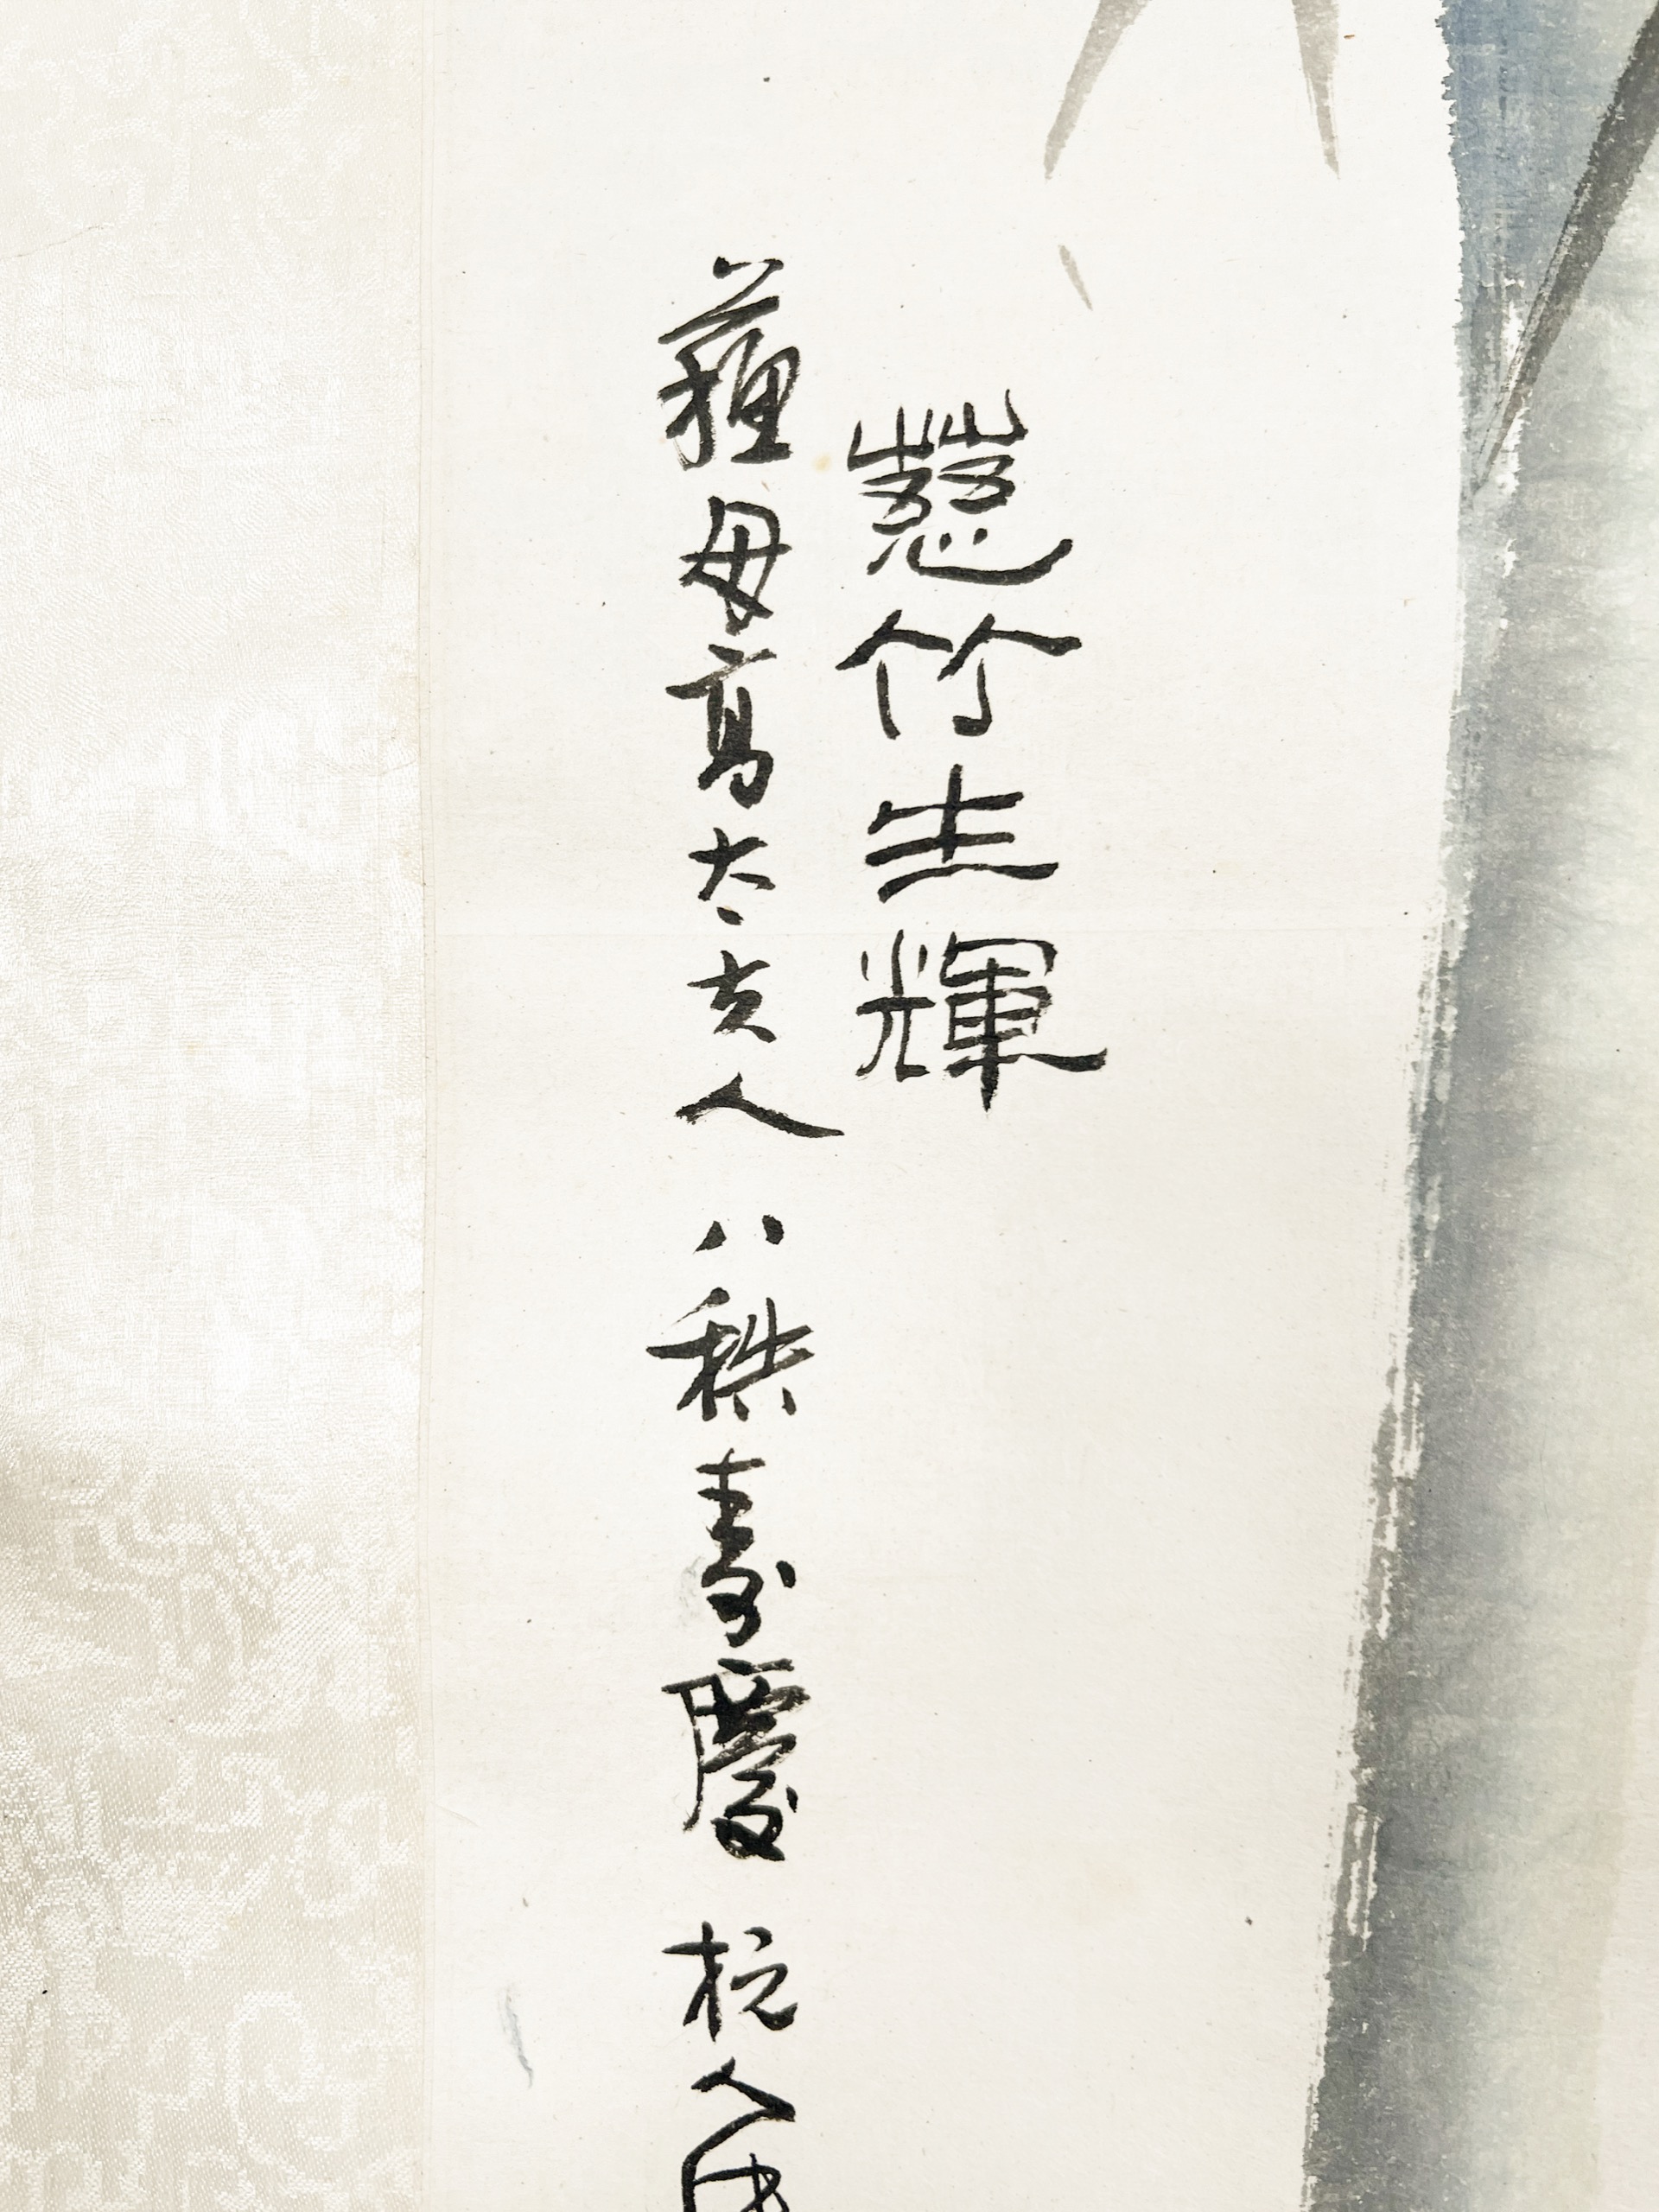 慈竹生輝
蘓母高太夫人 八秩壽慶 杭人